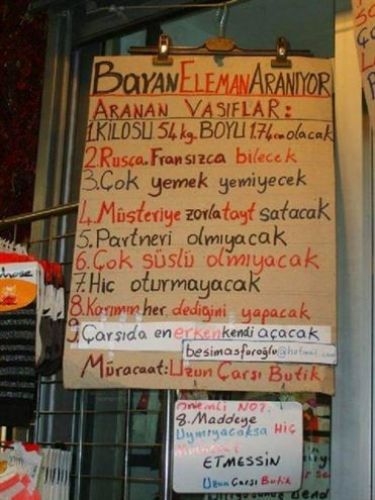 BAYAN ELEMAN ARANIYOR
ARANAN VASIFLAR:
1.KİLOSU 54 kg. BOYU 1.74 cm olacak
2.Rusça.Fransızca bilecek
3.Çok yemek yemiyecek
4.Müşteriye zorla tayt satacak
5.Partneri olmıyacak
6.Çok süslü olmıyacak
7.Hiç oturmayacak
8.Karımın her dediğini yapacak
9.Çarşıda en erken kendi açacak
besimasfuroğlu@hotmail.com
Müracaat: Uzun Çarşı Butik
Önemli NOT.
8.Maddeye
Uymıyacaksa Hiç
Müracaat
ETMESSİN
Uzun Çarşı Butik